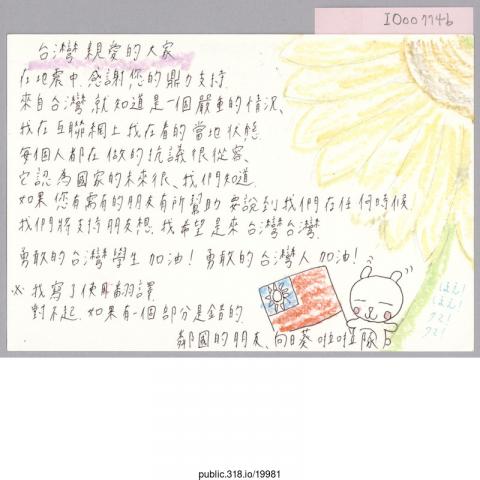 I0007746
台灣 親愛的大家
在地震中, 感謝您的鼎力支持.
來自台灣就知道是一個嚴重的情況、
我在互聯網上找在看的當地狀態.
每個人都在做的抗議很從容、
它認為國家的未來很、我們知道.
如果您有需有的朋友有所幫助 要說到我們在任何時候.
我們將支持朋友想. 我希望是來台灣台灣.
勇敢的台灣學生 加油! 勇敢的台灣人 加油!
※ 我寫了使用翻譯.
對不起. 如果有一個部分是錯的.
鄰國的朋友、向日葵啦啦隊
ほえ!
ほえ!
クエ!
クエ!
public.318.io/19981